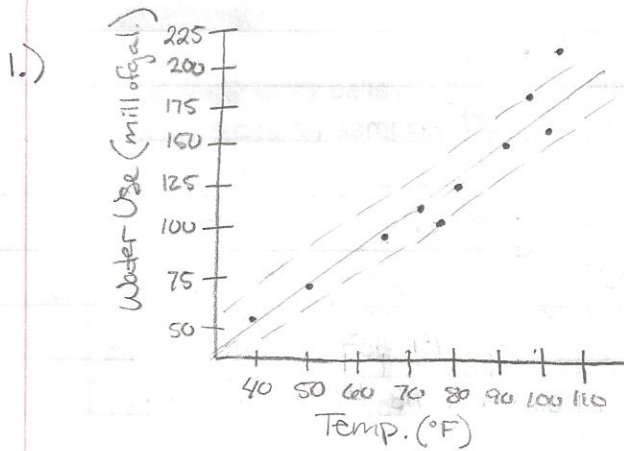 1.)
Water Use (mill of gal.)
225
200
175
150
125
100
75
50
40 50 60 70 80 90 100 110
Temp. (°F)